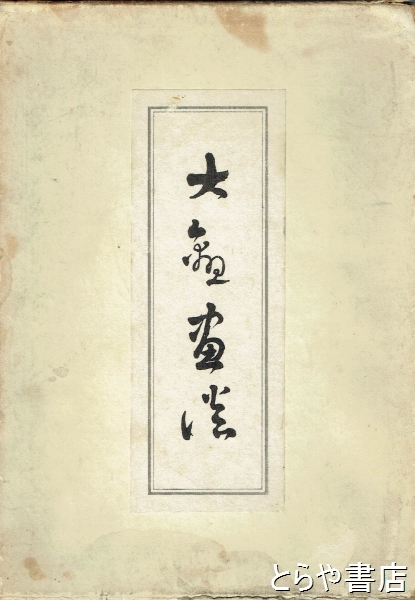 大観画談
とらや書店